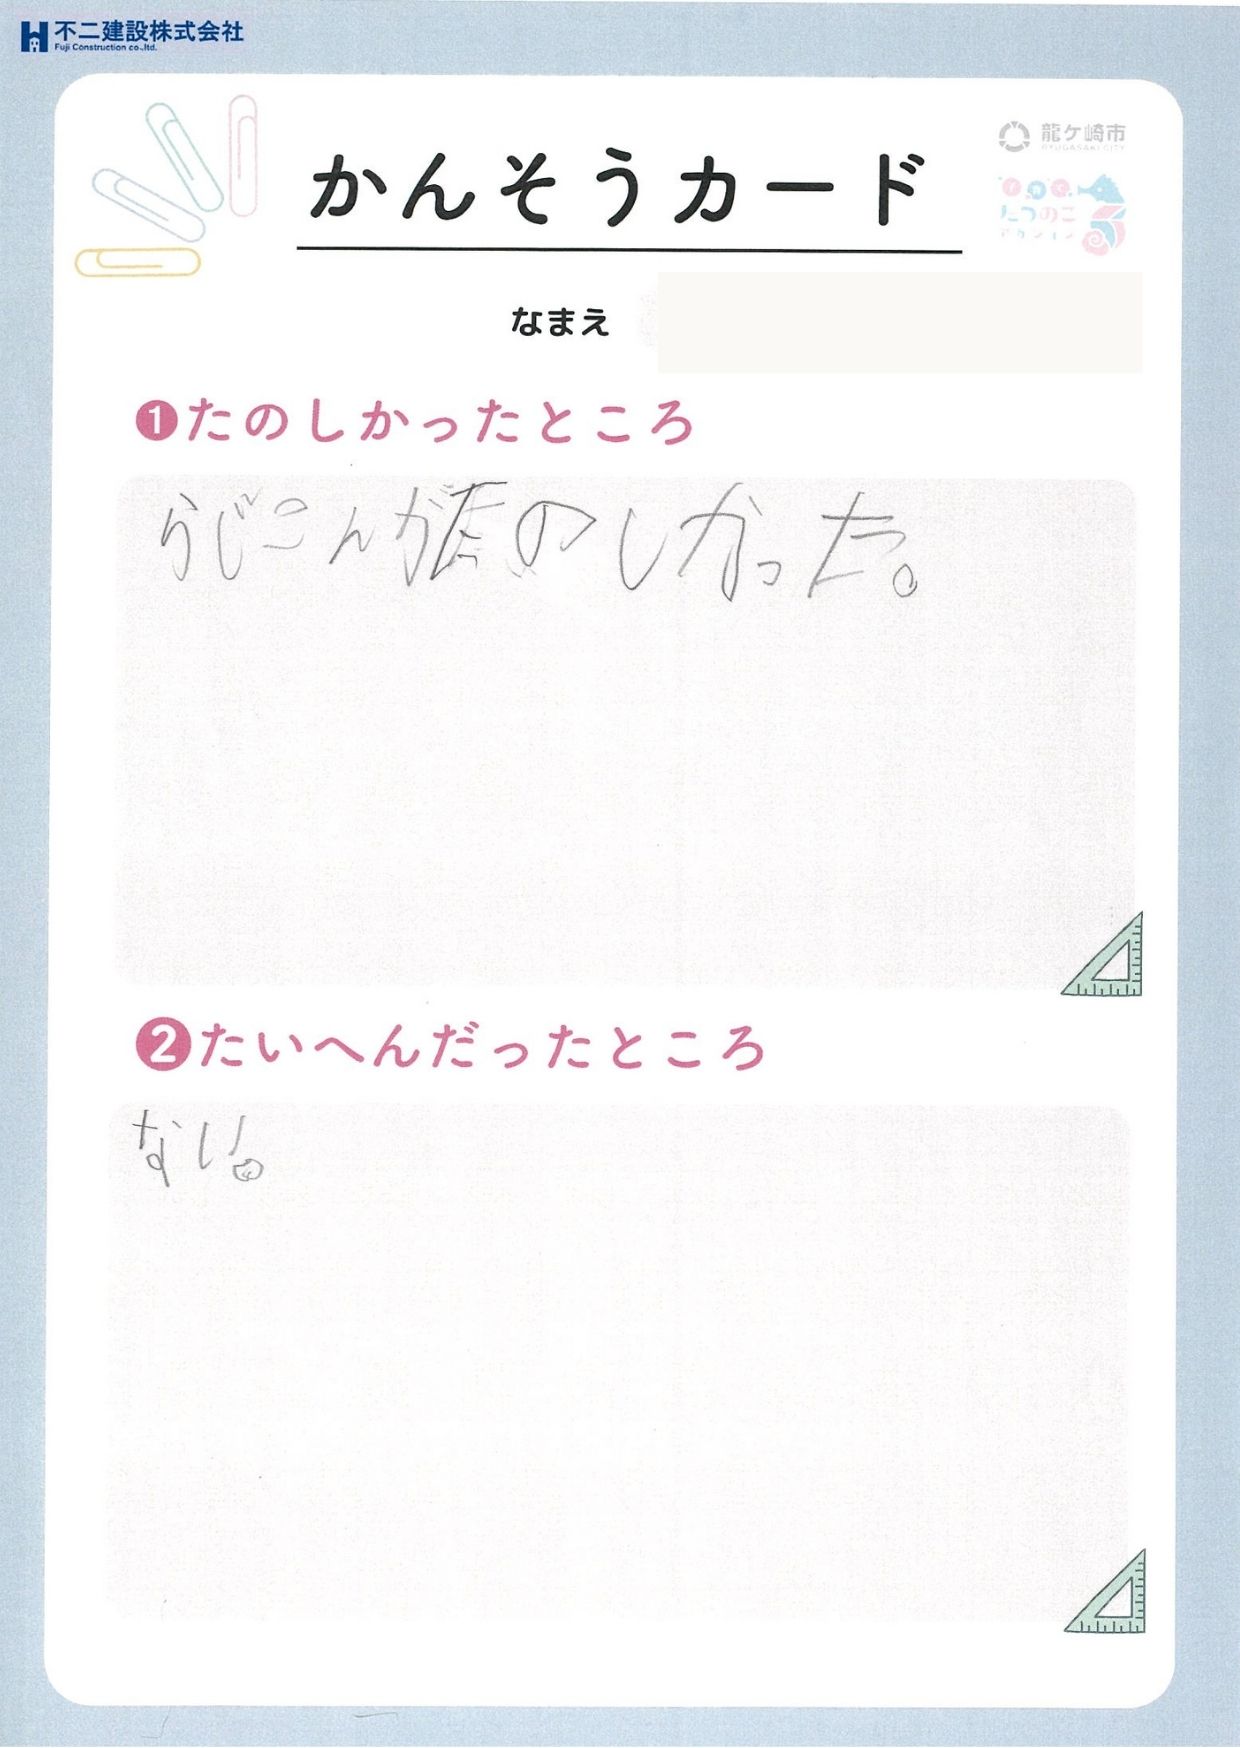 不二建設株式会社
Fuji Construction co.,ltd.
龍ケ崎市
RYUGASAKI CITY
かんそうカード
たつのこ
なまえ
❶たのしかったところ
らじこんがたのしかった。
❷たいへんだったところ
ない。